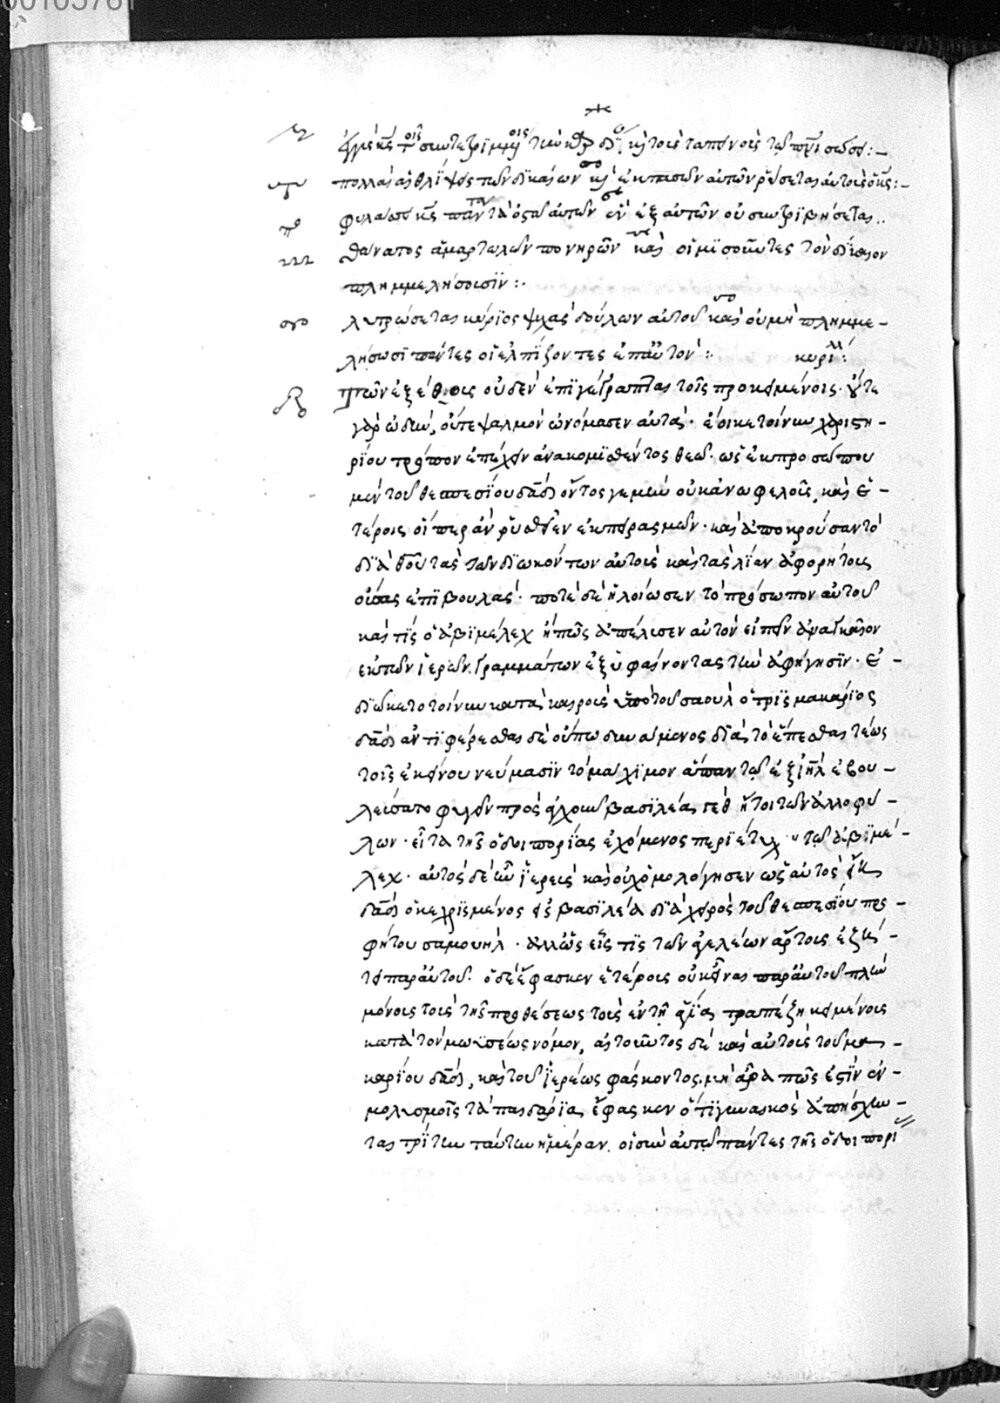 00105761
ἐγγὺς κ̅ς̅ τοῖς συντετριμμένοις τὴν καρδίαν, καὶ τοὺς ταπεινοὺς τῷ πν̅ι̅ σώσει:-
πολλαὶ αἱ θλίψεις τῶν δικαίων καὶ ἐκ πασῶν αὐτῶν ῥύσεται αὐτοὺς ὁ κ̅ς̅:-
φυλάσσει κ̅ς̅ πάντα τὰ ὀστᾶ αὐτῶν ἓν ἐξ αὐτῶν οὐ συντριβήσεται..
θάνατος ἁμαρτωλῶν πονηρὸς καὶ οἱ μισοῦντες τὸν δίκαιον
πλημμελήσουσιν:.
λυτρώσεται κύριος ψυχὰς δούλων αὐτοῦ καὶ οὐ μὴ πλημμε-
λήσωσι πάντες οἱ ἐλπίζοντες ἐπ' αὐτόν:. κυρίλλ:
τῶν ἐξ ἔθους οὐδὲν ἐπιγέγραπται τοῖς προκειμένοις. οὔτε
γὰρ ᾠδὴν, οὔτε ψαλμὸν ὠνόμασεν αὐτά. ἔοικε τοίνυν χαριστη-
ρίου τρόπον ἐπέχειν ἀνακομισθέντος θεῷ. ὡς ἐκ προσώπου
μὲν τοῦ θεσπεσίου δα̅δ̅ οὗτός γε μὴν οὐκ ἀνωφελοῦς, καὶ ἑ-
τέροις οἵπερ ἂν ῥυσθεῖεν ἐκ πειρασμῶν. καὶ ἀποκρούσαντο
διὰ θ̅υ̅ τὰς τῶν διωκόντων αὐτοὺς καὶ τὰς λίαν ἀφορήτους
οὔσας ἐπιβουλάς. πότε δὲ ἠλοίωσεν τὸ πρόσωπον αὐτοῦ
καὶ τίς ὁ ἀβιμέλεχ ἢ πῶς ἀπέλυσεν αὐτὸν εἰπεῖν ἀναγκαῖον
ἐκ τῶν ἱερῶν γραμμάτων ἐξυφαίνοντας τὴν ἀφήγησιν. ἐ-
διώκετο τοίνυν κατὰ καιροὺς ὑπὸ τοῦ σαοὺλ ὁ τρισμακάριος
δα̅δ̅ ἀντιφέρεσθαι δὲ οὔπω δυνάμενος διὰ τὸ ἕπεσθαι τέως
τοῖς ἐκείνου νεύμασιν τὸ μάχιμον ἅπαν τῶν ἐξ ι̅η̅λ̅ ἐβου-
λεύσατο φυγεῖν πρὸς ἀγχοὺν βασιλέα γὲθ ἤτοι τῶν ἀλλοφύ-
λων. εἶτα τῆς ὁδοιπορίας ἐχόμενος περιέτυχε τῷ ἀβιμέ-
λεχ. αὐτὸς δὲ ἦν ἱερεὺς καὶ οὐχ ὁμολόγησεν ὡς αὐτὸς εἴη
δα̅δ̅ ὁ κεχρισμένος εἰς βασιλέα διὰ χειρὸς τοῦ θεσπεσίου προ-
φήτου σαμουήλ. ἀλλ' ὡς εἷς τις τῶν ἀγελαίων ἄρτους ἐζή-
τει παρ' αὐτοῦ. ὁ δὲ ἔφασκεν ἑτέρους οὐκ εἶναι παρ' αὐτοῦ πλὴν
μόνους τοὺς τῆς προθέσεως τοὺς ἐν τῇ ἁγίᾳ τραπέζῃ κειμένους
κατὰ τὸν μωϋσέως νόμον, αἰτοῦντος δὲ καὶ αὐτοὺς τοῦ μα-
καρίου δα̅δ̅, καὶ τοῦ ἱερέως φάσκοντος, μὴ ἄρα πως ἐστὶν ἐν
μολυσμοῖς τὰ παιδάρια, ἔφασκεν ὅτι γυναικὸς ἀπέσχην-
ται τρίτην ταύτην ἡμέραν. οἱ σὺν αὐτῷ πάντες τῆς ὁδοιπορί